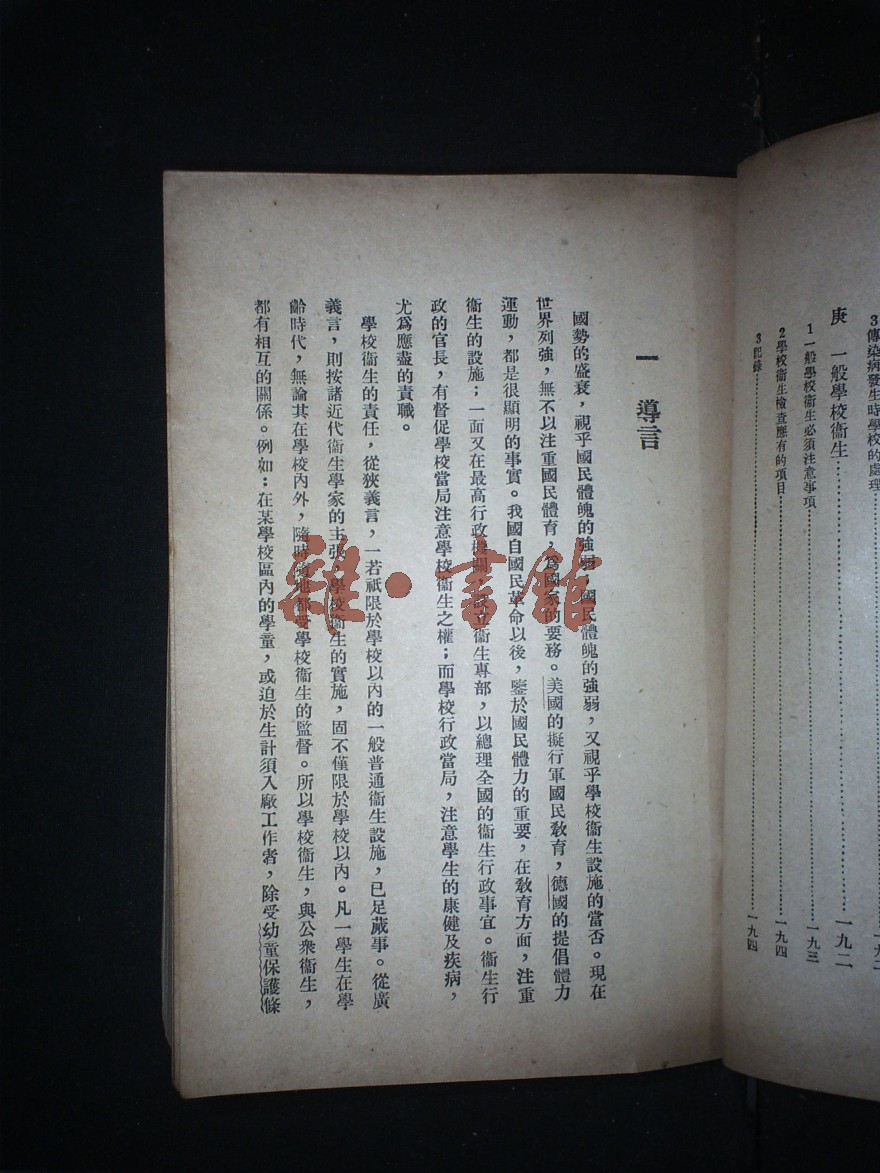 3 傳染病發生時學校的處理
庚 一般學校衞生……一九二
1 一般學校衞生必須注意事項……一九三
2 學校衞生檢查應有的項目……一九四
3 記錄……一九四
一 導言
國勢的盛衰，視乎國民體魄的強弱；國民體魄的強弱，又視乎學校衞生設施的當否。現在
世界列強，無不以注重國民體育，爲國家的要務。美國的擬行軍國民敎育，德國的提倡體力
運動，都是很顯明的事實。我國自國民革命以後，鑒於國民體力的重要，在敎育方面，注重
衞生的設施；一面又在最高行政機關，設立衞生專部，以總理全國的衞生行政事宜。衞生行
政的官長，有督促學校當局注意學校衞生之權；而學校行政當局，注意學生的康健及疾病，
尤爲應盡的責職。
學校衞生的責任，從狹義言，一若祇限於學校以內的一般普通衞生設施，已足蕆事。從廣
義言，則按諸近代衞生學家的主張，學校衞生的實施，固不僅限於學校以內。凡一學生在學
齡時代，無論其在學校內外，隨時隨地都受學校衞生的監督。所以學校衞生，與公衆衞生，
都有相互的關係。例如：在某學校區內的學童，或迫於生計須入廠工作者，除受幼童保護條
雜·書館